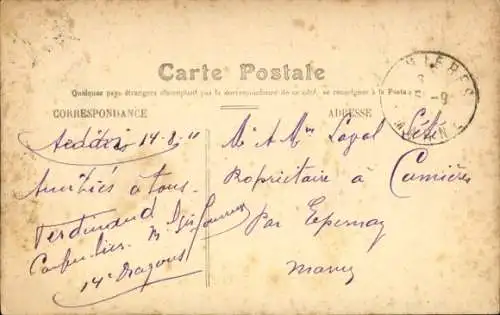 Carte Postale
Quelques pays étrangers n'acceptent pas la correspondance de ce côté, se renseigner à la Poste
CORRESPONDANCE
ADRESSE
14-8-11
Amitiés à tous.
Ferdinand
14e Dragons
Mr & Mme Loyal
Propriétaire à Cumières
Par Epernay
Marne